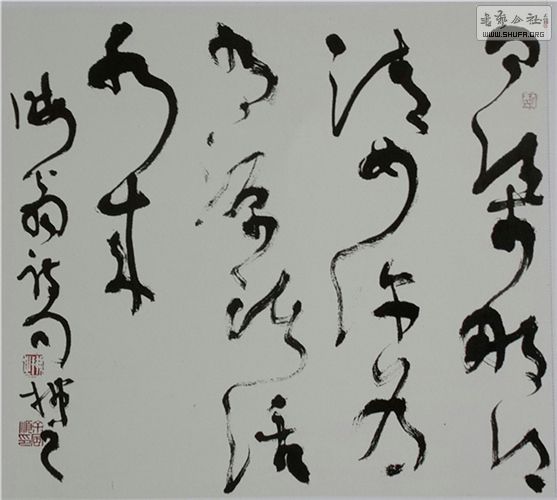 问渠那得
清如许为
有源头活
水来
晦翁诗句
书法公社
WWW.SHUFA.ORG